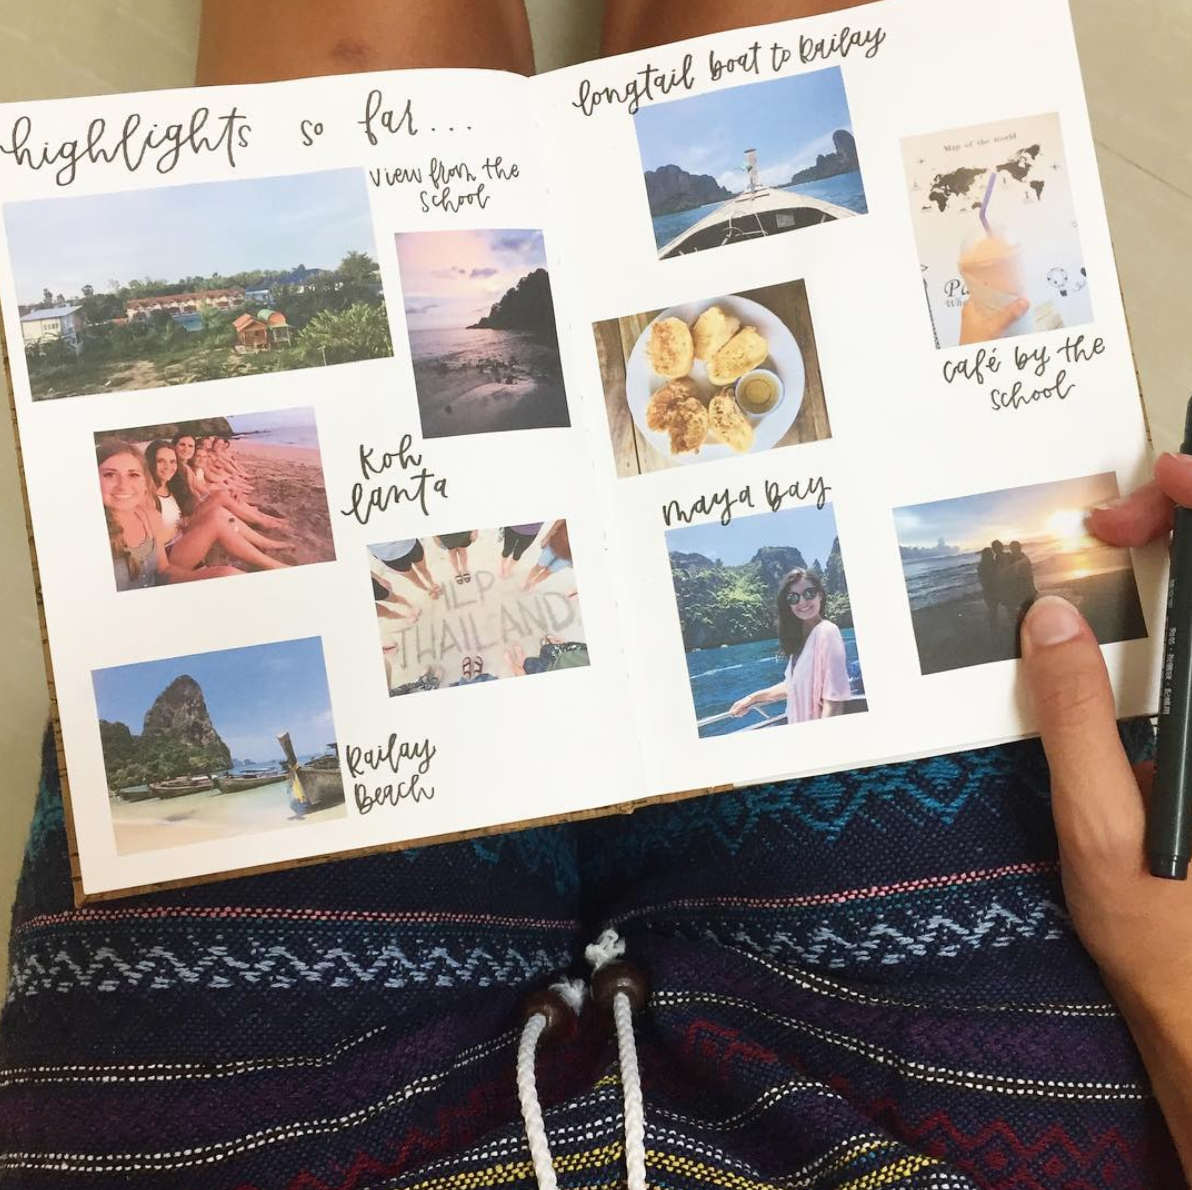 highlights so far...
view from the
school
Koh
lanta
ILP
THAILAND
Railay
Beach
longtail boat to Railay
Map of the world
café by the
school
maya bay